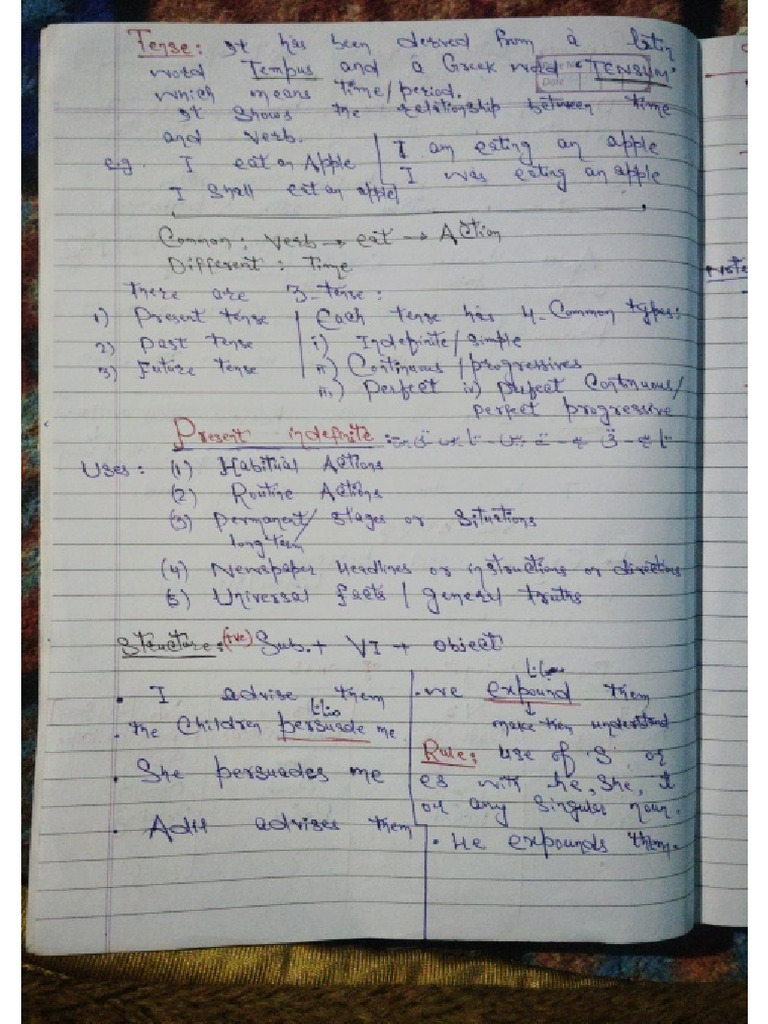 Tense: It has been derived from a latin
word Tempus and a Greek word "TENSUM"
which means time/period.
It shows the relationship between time
and verb.
e.g. I eat an Apple | I am eating an apple
I shall eat an apple | I was eating an apple
Common: Verb → eat → Action
Different : Time
There are 3-tense:
1) Present tense | Each tense has 4-Common types:
2) Past tense | i) Indefinite/simple
3) Future tense | ii) Continuous/progressives
iii) Perfect iv) perfect Continuous/
perfect progressive
Present indefinite:
Uses: (1) Habitual Actions
(2) Routine Actions
(3) Permanent/ Stages or Situations
long term
(4) Newspaper Headlines or instructions or directions
(5) Universal facts / general truths
Structure: (+ve) Sub. + V1 + object
• I advise them
• The Children persuade me
• She persuades me
• Adil advises them
• We expound them
↓
make them understand
Rule: use of S or
es with he, she, it
or any singular noun.
• He expounds them.
Note